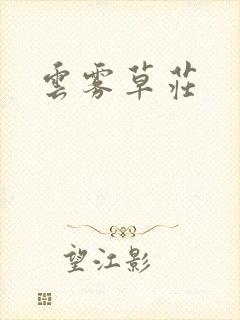 雲雾草莊
望江影